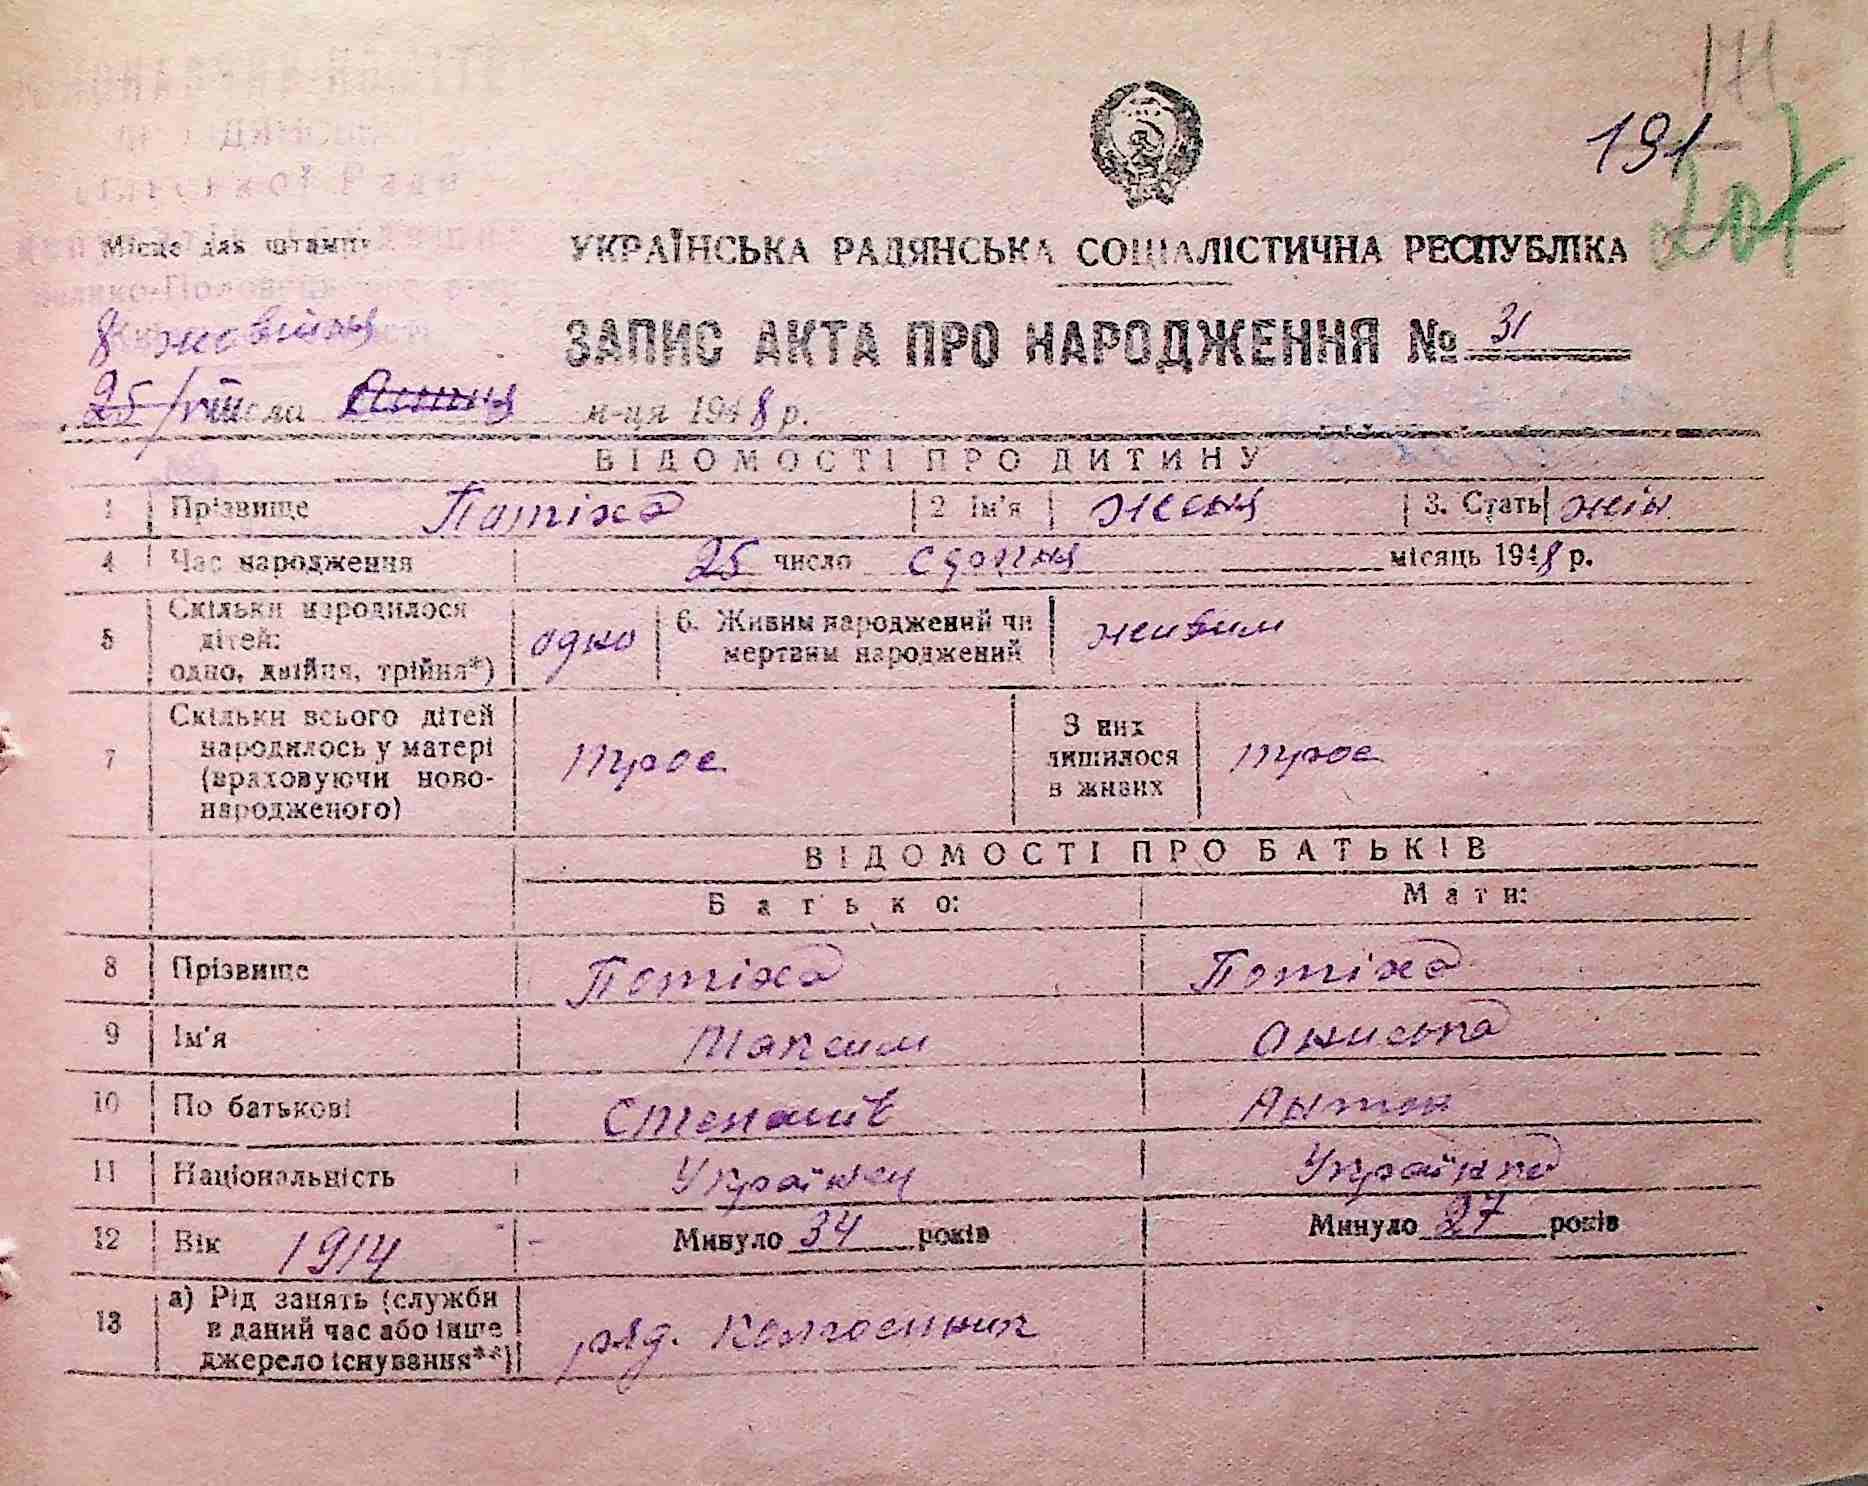 171
191
207
Місце для штампу
УКРАЇНСЬКА РАДЯНСЬКА СОЦІАЛІСТИЧНА РЕСПУБЛІКА
8 жовтня
ЗАПИС АКТА ПРО НАРОДЖЕННЯ № 31
25/VIII числа м-ця 1948 р.
ВІДОМОСТІ ПРО ДИТИНУ
1 Прізвище Потіха 2 Ім'я Женя 3. Стать жін
4 Час народження 25 число серпня місяць 1948 р.
5 Скільки народилося дітей: одно, двійня, трійня*) одно 6. Живим народжений чи мертвим народжений живим
7 Скільки всього дітей народилось у матері (враховуючи новонародженого) троє З них лишилося в живих троє
ВІДОМОСТІ ПРО БАТЬКІВ
Батько: Мати:
8 Прізвище Потіха Потіха
9 Ім'я Максим Ониська
10 По батькові Степанів Антон
11 Національність Українец Українка
12 Вік 1914 - Минуло 34 років Минуло 27 років
13 а) Рід занять (служби в даний час або інше джерело існування**) ряд. колгоспник